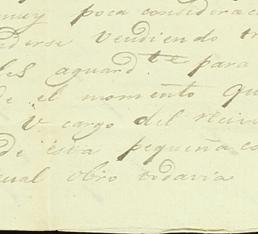 muy poca considerac
derse vendiendo tr
les aguard.te para
de el momento qu
V. cargo del
de esta pequeña co
cual obro todavia